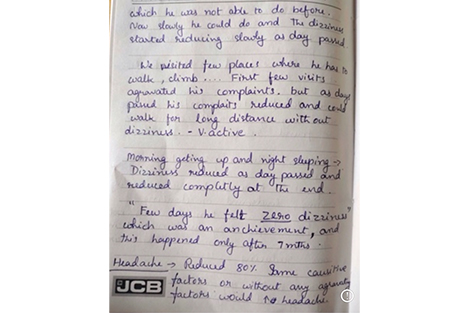 which he was not able to do before.
Now slowly he could do and The dizziness
started reducing slowly as day passed.
We visited few places where he has to
walk, climb .... First few visits
agravated his complaints. but as days
passed his complaits reduced and could
walk for long distance without
dizziness. - V. active.
Morning geting up and night sleeping →
Dizziness reduced as day passed and
reduced completly at the end.
"Few days he felt ZERO dizziness"
which was an anchievement, and
this happened only after 7 mths.
Headache → Reduced 80%. Same causitive
factors or without any agravating
factors would no headache.
JCB